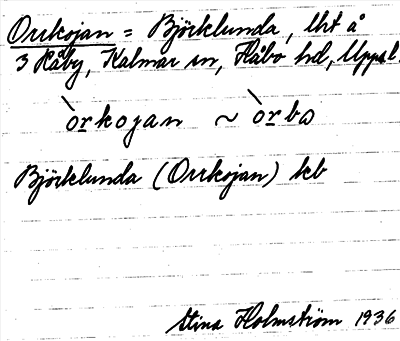 Orrkojan = Björklunda, lht å
3 Råby, Kalmar sn, Håbo hd, Uppsl.
`òrkojan ~ `òrbo
Björklunda (Orrkojan) kb
Stina Holmström 1936